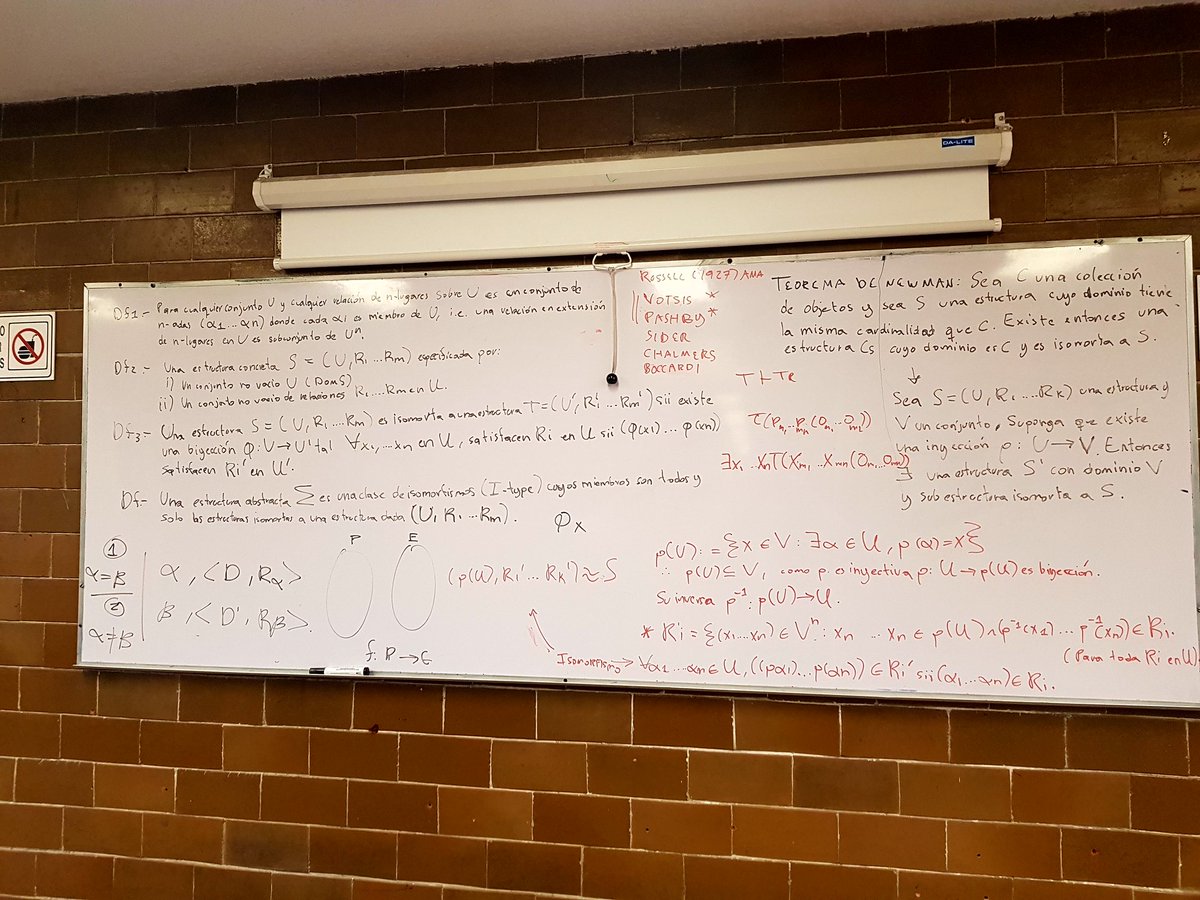 DA-LITE
Df1.- Para cualquier conjunto U y cualquier relación de n-lugares sobre U es un conjunto de
n-adas (α1...αn) donde cada αi es miembro de U, i.e. una relación en extensión
de n-lugares en U es subconjunto de Uⁿ.
Df2.- Una estructura concreta S = (U, R1 ... Rm) especificada por:
i) Un conjunto no vacío U (DomS)
ii) Un conjunto no vacío de relaciones R1,...Rm en U.
Df3.- Una estructura S = (U, R1 ... Rm) es isomorfa a una estructura T = (U', R1' ... Rm') sii existe
una biyección φ: U → U' tal ∀x1,...xn en U, satisfacen Ri en U sii (φ(x1) ... φ(xn)
satisfacen Ri' en U'.
Df.- Una estructura abstracta Σ es una clase de isomorfismos (I-type) cuyos miembros son todos y
solo las estructuras isomorfas a una estructura dada (U, R1 ... Rm).
Φx
①
α=β
②
α≠β
α, <D, Rα>
β, <D', Rβ>.
P E
f: P → E
(ρ(U), R1' ... Rk') ≈ S
RUSSELL (1927) ANA
VOTSIS *
PASHBY *
SIDER
CHALMERS
BOCCARDI
T ⊢ TR
∃x1 ..xn
TEOREMA DE NEWMAN: Sea C una colección
de objetos y sea S una estructura cuyo dominio tiene
la misma cardinalidad que C. Existe entonces una
estructura Cs cuyo dominio es C y es isomorfa a S.
↓
Sea S = (U, R1 ... Rk) una estructura y
V un conjunto, Suponga que existe
una inyección ρ: U → V. Entonces
∃ una estructura S' con dominio V
y subestructura isomorfa a S.
ρ(U) := {x ∈ V : ∃α ∈ U, ρ(α)=x}
∴ ρ(U) ⊆ V, como ρ es inyectiva ρ: U → ρ(U) es biyección.
Su inversa ρ⁻¹: ρ(U) → U.
* Ri' = {(x1,...xn) ∈ Vⁿ : xn ... xn ∈ ρ(U) ∧ (ρ⁻¹(x1) ... ρ⁻¹(xn)) ∈ Ri.
(Para toda Ri en U)
Isomorfismo → ∀α1 ... αn ∈ U, ((ρα1) ... ρ(αn)) ∈ Ri' sii (α1 ... αn) ∈ Ri.